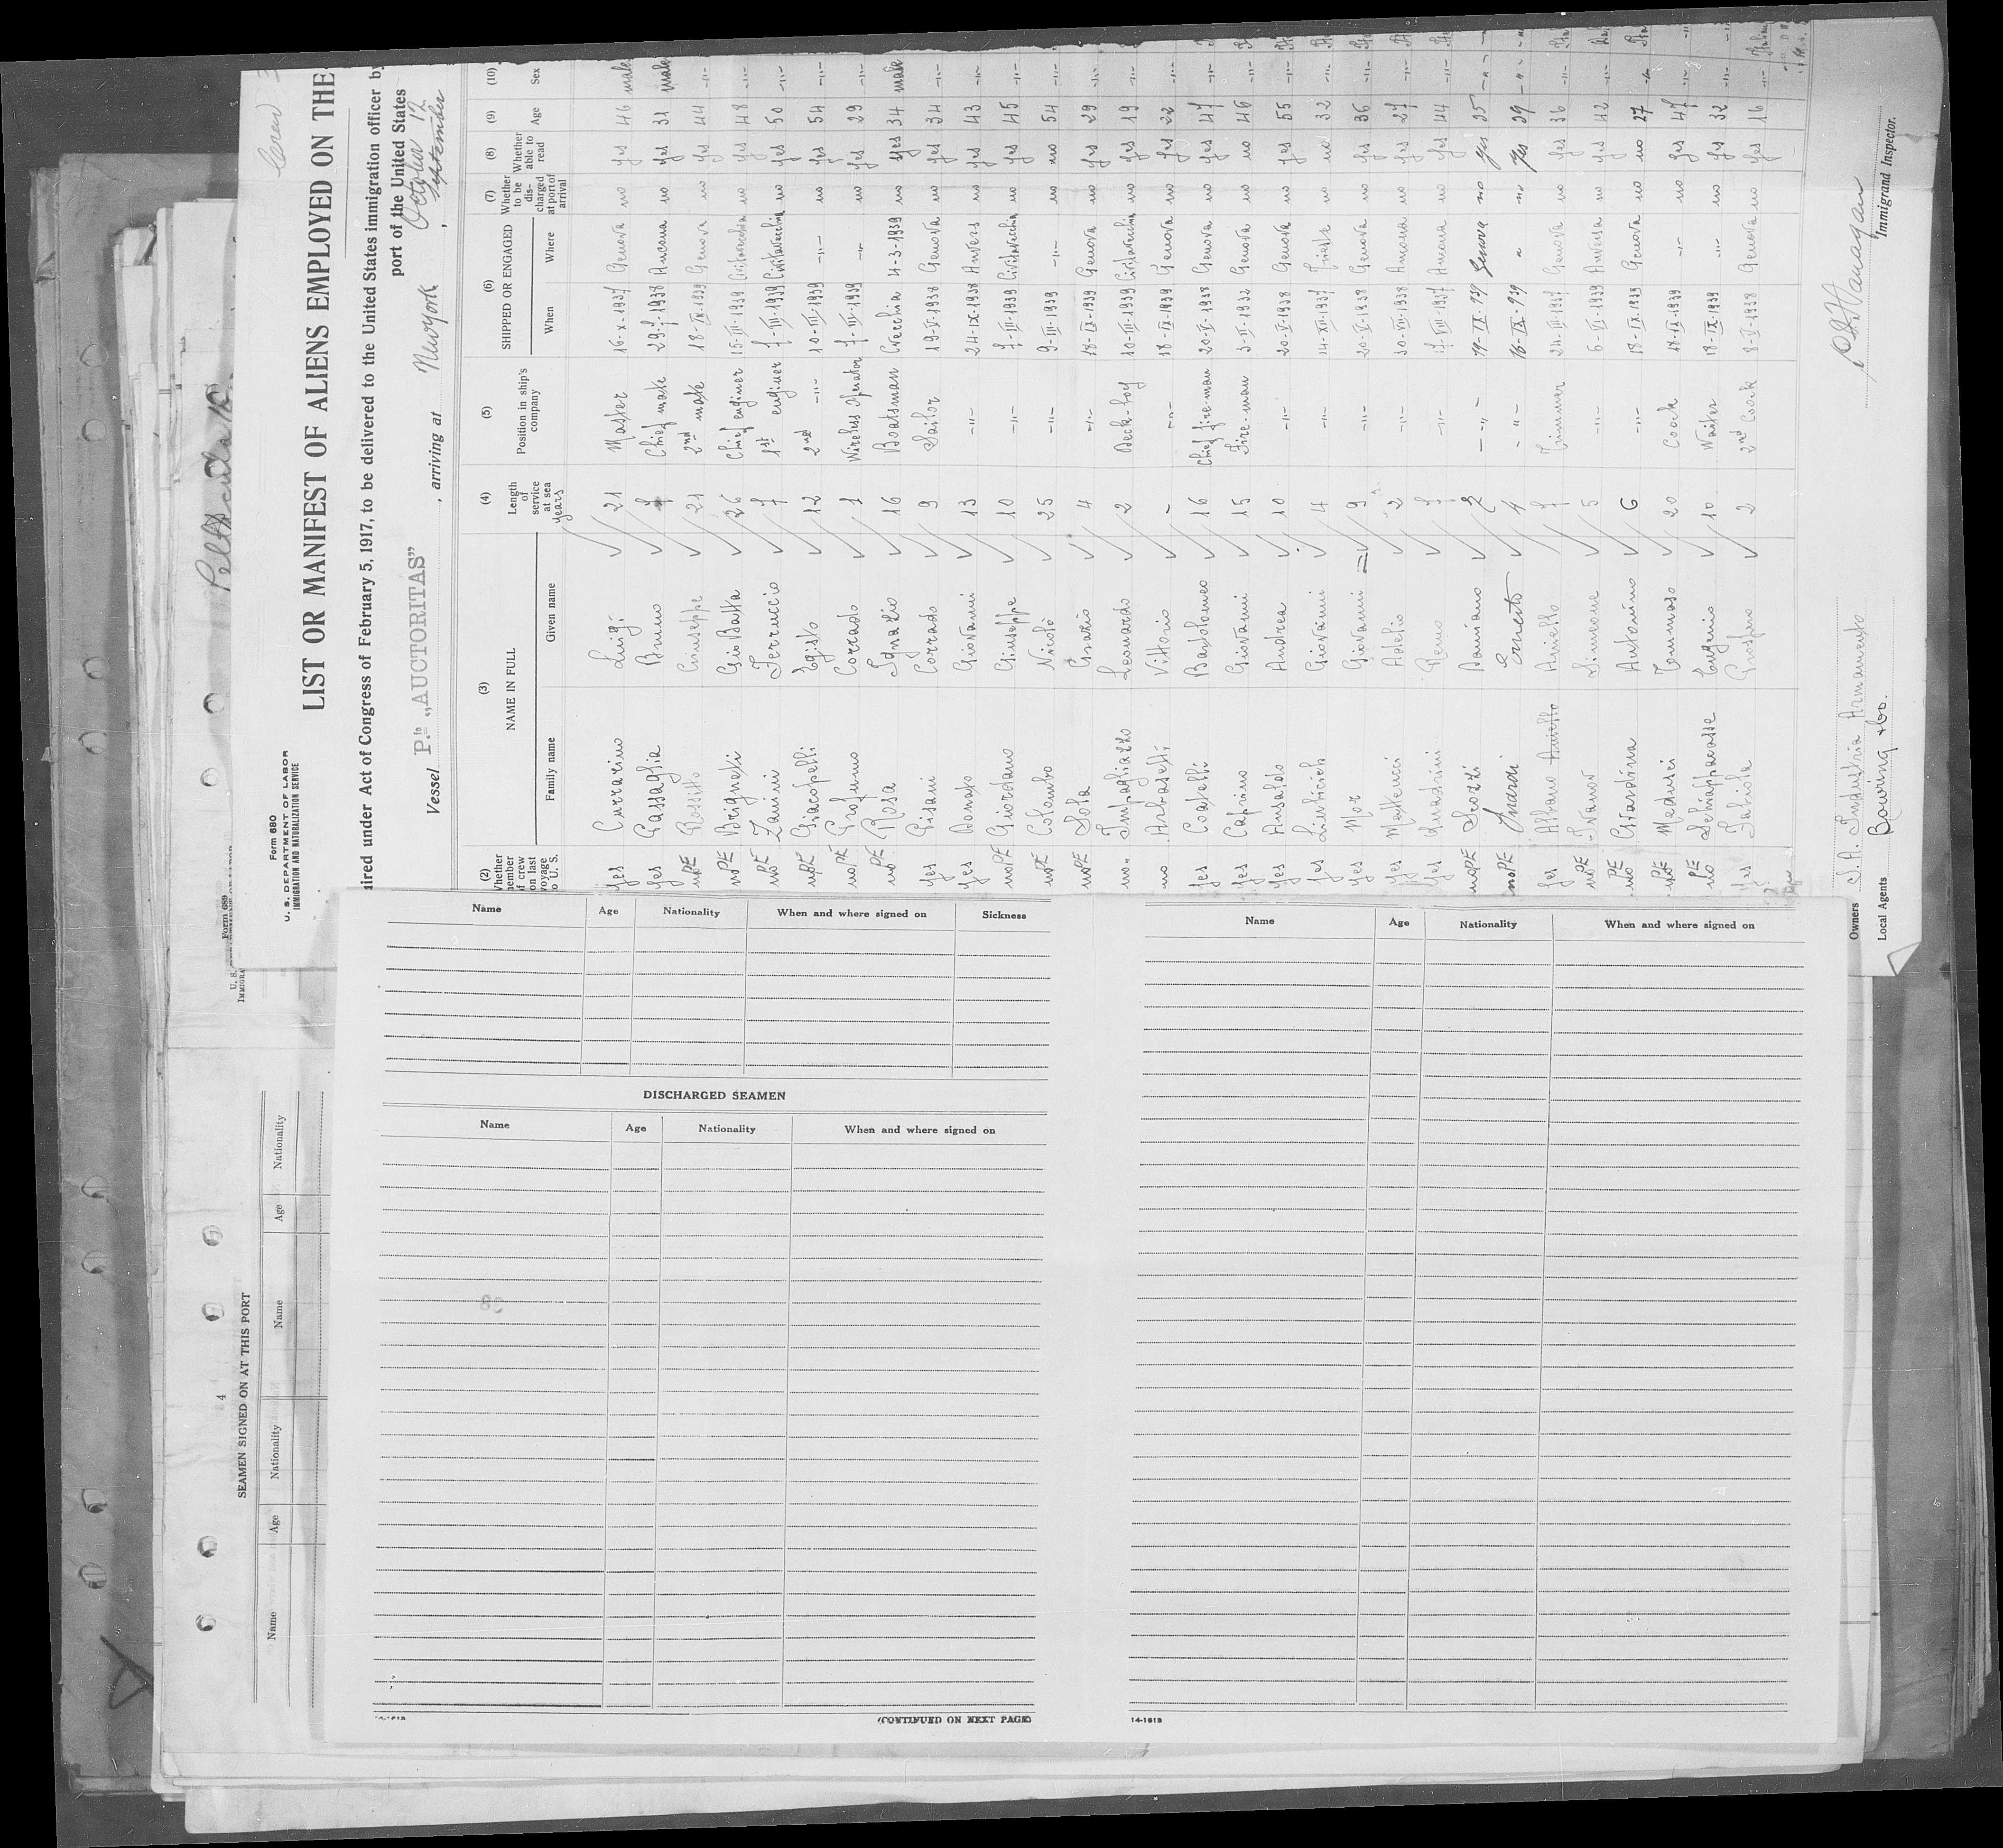 Crew
Form 680
U. S. DEPARTMENT OF LABOR
IMMIGRATION AND NATURALIZATION SERVICE
LIST OR MANIFEST OF ALIENS EMPLOYED ON THE
uired under Act of Congress of February 5, 1917, to be delivered to the United States immigration officer by
port of the United States
Vessel P.fo „AUCTORITAS” , arriving at Newyork , September October 12
(2) (3) (4) (5) (6) (7) (8) (9) (10)
Whether member of crew on last voyage to U. S. NAME IN FULL Family name Given name Length of service at sea years Position in ship's company SHIPPED OR ENGAGED When Where Whether to be discharged at port of arrival Whether able to read Age Sex
yes Currarino Luigi 21 Master 16-X-1937 Genova no yes 46 male
yes Passaglia Bruno Chief mate Ancona no yes 31 male
no PE Rossitto Giuseppe 21 2nd mate 18-IX-1939 Genova no yes 44 -"-
no PE Brigneti Gio Batta 26 Chief enginer 15-III-1939 Civitavecchia no yes 48 -"-
no PE Zanini Ferruccio 7 1st enginer 7-III-1939 Civitavecchia no yes 50 -"-
no PE Giacopelli Egisto 12 2nd -"- 10-III-1939 -"- no yes 54 -"-
no PE Profumo Corrado 1 Wireless Operator 7-III-1939 -"- no yes 29 -"-
no PE Rosa Ignazio 16 Boatsman Cvecchia 4-3-1939 no yes 34 male
yes Pisani Corrado 9 Sailor 19-V-1938 Genova no yes 34 -"-
yes Donato Giovanni 13 -"- 24-IX-1938 Anvers no yes 43 -"-
no PE Giordano Giuseppe 10 -"- 7-III-1939 Civitavecchia no yes 45 -"-
no PE Colombo Nicolò 25 -"- 9-III-1939 -"- no no 54 -"-
no PE Sola 4 -"- 18-IX-1939 Genova no yes 29 -"-
no " Impagliazzo Leonardo 2 Deck-boy 10-III-1939 Civitavecchia no yes 19 -"-
no Arbasetti Vittorio - -"- 18-IX-1939 Genova no yes 22 -"-
yes Costelli Bartolomeo 16 Chief fire-man 20-V-1938 Genova no yes 47 -"-
yes Caprino Giovanni 15 Fire-man 3-V-1932 Genova no no 46 -"-
yes Ansaldo Andrea 10 -"- 20-V-1938 Genova no yes 55 -"-
yes Giovanni 4 -"- 14-XII-1937 Trieste no no 32 -"-
yes Mor Giovanni 9 -"- 20-V-1938 Genova no yes 36 -"-
yes Mattucci Adelio 2 -"- 30-VI-1938 Ancona no yes 27 -"-
yes Guadrini Remo -"- Ancona no yes 44 -"-
no PE Scozzi Damiano 2 - " - 19-IX-939 Genova no yes 35 - " -
no PE Ernesto 4 - " - 16-IX-939 " " yes 39 - " -
yes Albano Aniello Aniello Trimmer 24-III-1937 Genova no yes 36 -"-
no PE Ivanov Simeone 5 -"- 6-VI-1939 Anversa no yes 42 -"-
no PE Giardina Antonino 6 -"- 18-IX-1939 Genova no no 27 -"-
no PE Medusei Tommaso 20 Cook 18-IX-1939 -"- no yes 47 -"-
no PE Schiappacasse Eugenio 10 Waiter 18-IX-1939 -"- no yes 32 -"-
yes Fabiola Prospero 2 2nd Cook 8-V-1938 Genova no yes 16 -"-
Owners S.A. Industria Armamento
Local Agents Bowring & Co.
Immigrand Inspector.
Name Age Nationality When and where signed on Sickness
DISCHARGED SEAMEN
Name Age Nationality When and where signed on
(CONTINUED ON NEXT PAGE)
Name Age Nationality When and where signed on
14-1613
Form 689
4
SEAMEN SIGNED ON AT THIS PORT
Name Age Nationality Name Age Nationality